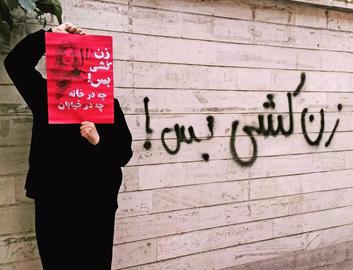 زن
کشی
بس!
چه در خانه
چه در خیابان
زن کشی بس!